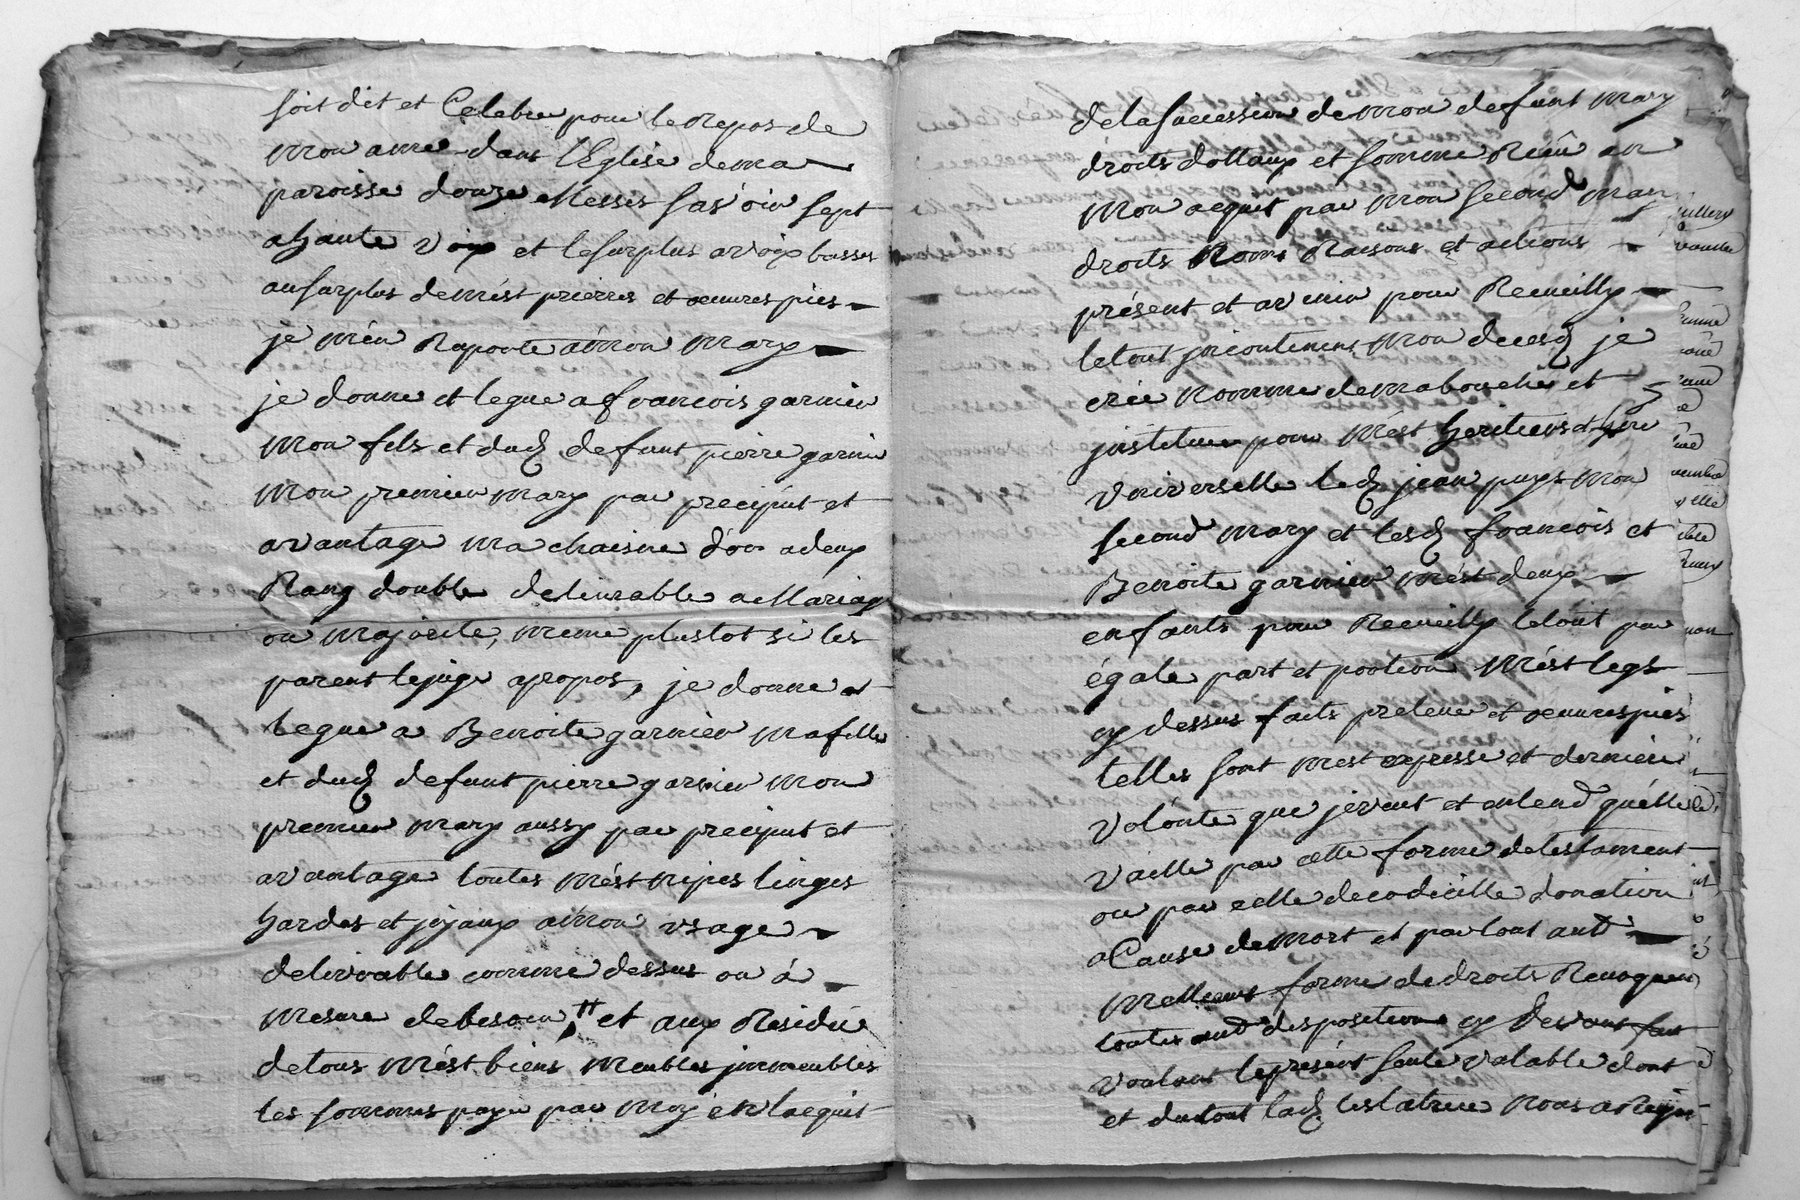 soit dit et Celebre pour le Repos de
mon ame dans l'Eglise de ma
paroisse douze Messes sas'oir sept
a haute voix et le surplus a voix basses
au surplus de mést prierres et oeuvres pies
je mén Raporte a mon mary
je donne et legue a francois garnier
mon fils et dud defunt pierre garnier
mon premier mary par precipút et
avantage ma chaisne d'or a deux
Rang double delivrable a Mariage
ou majorite, meme plustot si les
parent lejuge apropos, je donne et
legue a Benoite garnier ma fille
et dud defunt pierre garnier mon
premier mary aussy par preciput et
avantage toutes mést nipes linges
hardes et joyaux a mon usage
delivrable comme dessus ou á
mesure de besoin # et aux Residu
de tous mést biens meubles jmmeubles
les sommes paye par moy et l'acquit
de la succession de mon defunt mary
droits dottaux et somme Reçû an
mon acquit par mon second mary
droits Noms Raisons et actions
présent et avenir pour Recueilly
le tout jncontinent mon deces je
crée nomme de ma bouche et
jnstitue pour mést heritiers et
universelle led jean puys mon
second mary et lesd francois et
Benoite garnier mést deux
enfants pour Recueilly le tout par
égale part et portion mést legs
cy dessus faits preleve et oeuvres pies
telles sont mest expresse et derniere
volónte que je veut et entend quélle
vaille par cette forme de testament
ou par celle de codicille donation
a Cause de Mort et par tout aut
meilleure forme de droits Revoquant
toutes aut dispositions cy devant fait
voulant le présent seule valable dont
et du tout lad testatrice nous a Requis